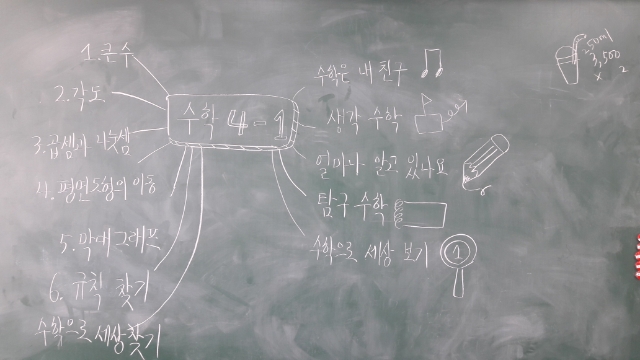 1. 큰 수
2. 각도
3. 곱셈과 나눗셈
4. 평면도형의 이동
5. 막대그래프
6. 규칙 찾기
수학으로 세상 찾기
수학 4-1
수학은 내 친구
생각 수학
얼마나 알고 있나요
탐구 수학
수학으로 세상 보기
1
50ml
3,500
x 2